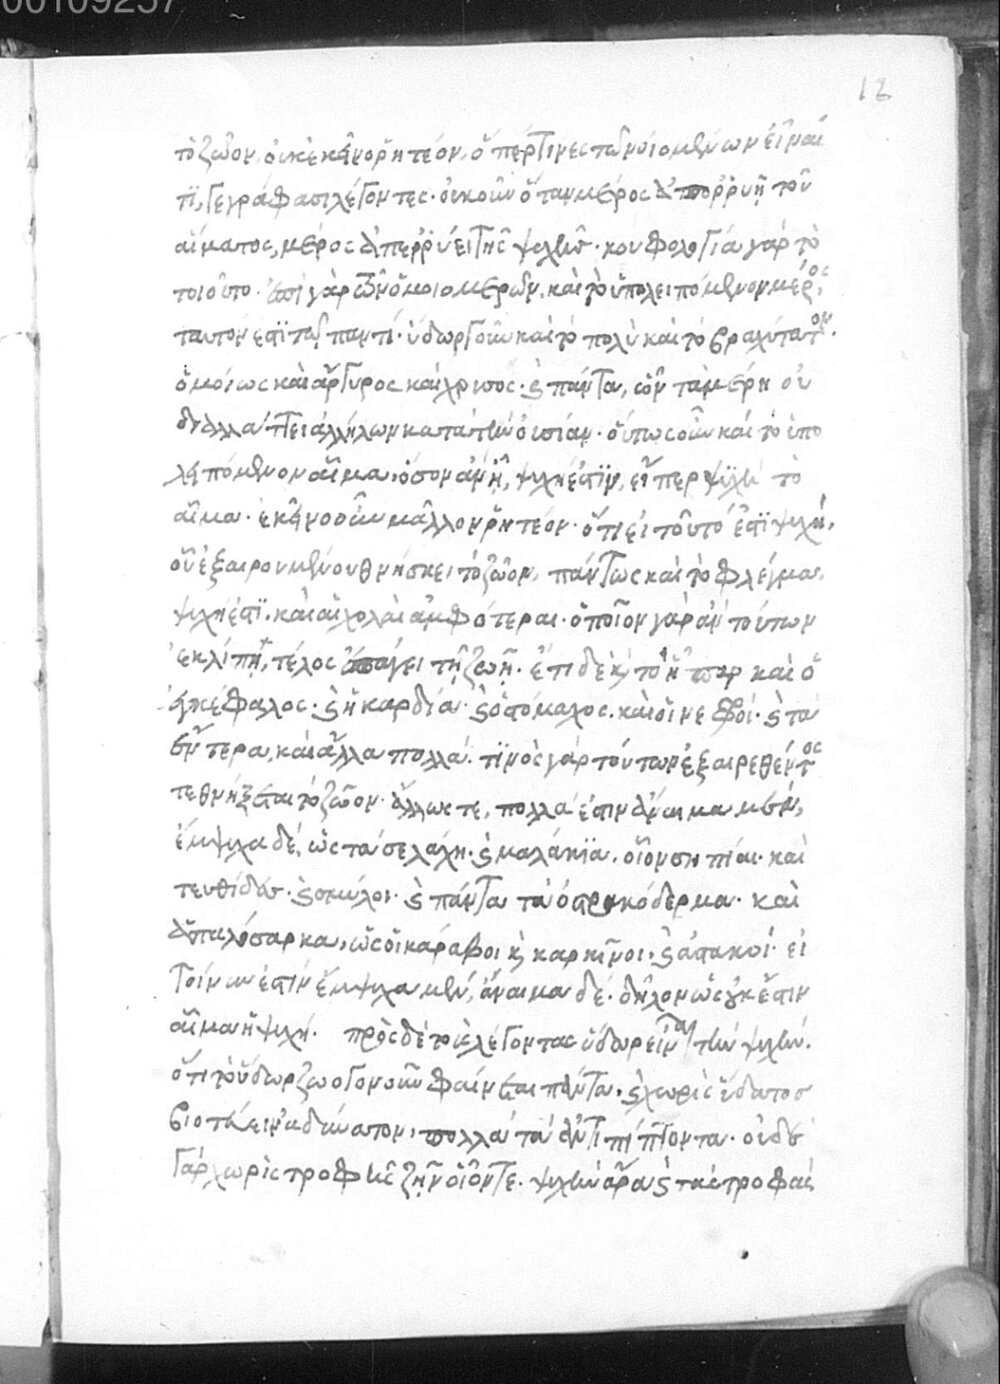 00109257
12
τὸ ζῶον, οὐκ ἐκεῖνο ῥητέον, ὅπέρ τινες τῶν οἰομένων εἶναί
τι, γεγράφασι λέγοντες· οὐκοῦν ὅταν μέρος ἀπορρυῇ τοῦ
αἵματος, μέρος ἀπερρύει τῆς ψυχῆς· κουφολογία γὰρ τὸ
τοιοῦτο· ἐπὶ γὰρ τῶν ὁμοιομερῶν, καὶ τὸ ὑπολειπόμενον μέρος,
ταυτόν ἐστι τῷ παντί· ὕδωρ γοῦν καὶ τὸ πολὺ καὶ τὸ βραχύτατον·
ὁμοίως καὶ ἄργυρος καὶ χρυσος· καὶ πάντα, ὧν τὰ μέρη οὐ
διαλλάττει ἀλλήλων κατὰ τὴν οὐσίαν· οὕτως οὖν καὶ τὸ ὑπο
λειπόμενον αἷμα, ὁσον ἀν ᾖ, ψυχή ἐστιν, εἴπερ ψυχὴ τὸ
αἷμα· ἐκεῖνο οὖν μᾶλλον ῥητέον· ὅτι εἰ τοῦτό ἐστι ψυχή,
οὗ ἐξαιρουμένου θνήσκει τὸ ζῶον, πάντως καὶ τὸ φλέγμα,
ψυχή ἐστι· καὶ αἱ χολαὶ ἀμφότεραι· ὁποῖον γὰρ ἀν τούτων
ἐκλίπῃ, τέλος ἐπάγει τῇ ζωῇ· ἔτι δὲ καὶ τὸ ἧπαρ καὶ ὁ
ἐγκέφαλος· καὶ ἡ καρδία· καὶ ὁ στόμαχος· καὶ οἱ νεφροί· καὶ τὰ
ἔντερα, καὶ ἄλλα πολλά· τίνος γὰρ τούτων ἐξαιρεθέντος
τεθνήξεται τὸ ζῶον· ἄλλως τε, πολλά ἐστιν ἄναιμα μὲν,
ἔμψυχα δέ, ὡς τὰ σελάχη· καὶ μαλάκια· οἷον σηπίαι· καὶ
τευθίδες· καὶ σμύλοι· καὶ πάντα τὰ ὀστρακόδερμα· καὶ
ἁπαλόσαρκα, ὡς οἱ κάραβοι καὶ καρκῖνοι, καὶ ἀστακοί· εἰ
τοίνυν ἐστὶν ἔμψυχα μὲν, ἄναιμα δέ· δῆλον ὡς οὐκ ἔστιν
αἷμα ἡ ψυχή. πρὸς δὲ τοὺς λέγοντας ὕδωρ εἶναι τὴν ψυχὴν·
ὅτι τὸ ὕδωρ ζωογονοῦν φαίνεται πάντα, καὶ χωρὶς ὕδατος
βιοτεύειν ἀδύνατον, πολλά τὰ ἀντιπίπτοντα· οὐδὲ
γὰρ χωρὶς τροφῆς ζῆν οἷόν τε· ψυχὴν ἄρα καὶ τὰς τροφὰς